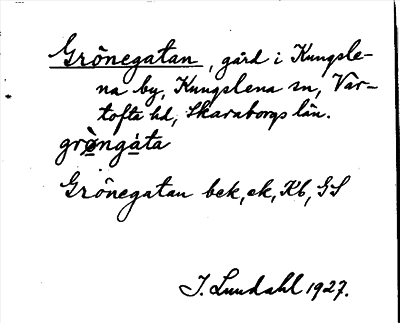 Grönegatan, gård i Kungsle-
na by, Kungslena sn, Var-
tofta hd, Skaraborgs län.
grö̀ngáta
Grönegatan bek, ek, Kb, GS
J. Lundahl 1927.